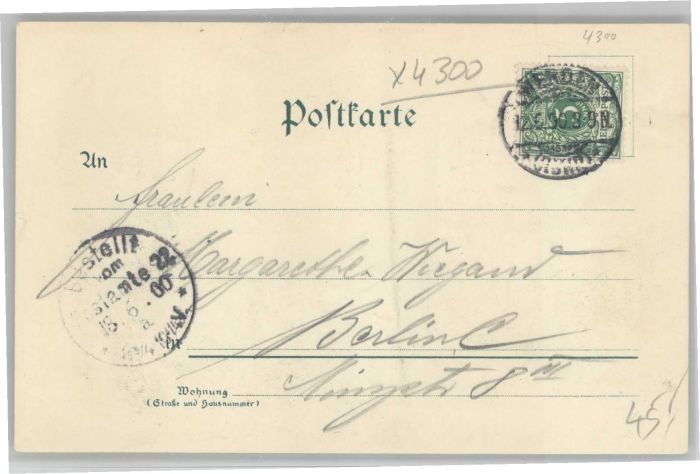 4300
x4300
Postkarte
An
Fräulein
Margarethe Wiegand
Berlin C
in
Münzstr 8 III
Wohnung
(Straße und Hausnummer)
Bestellt
vom
Postamte 22
00
45,